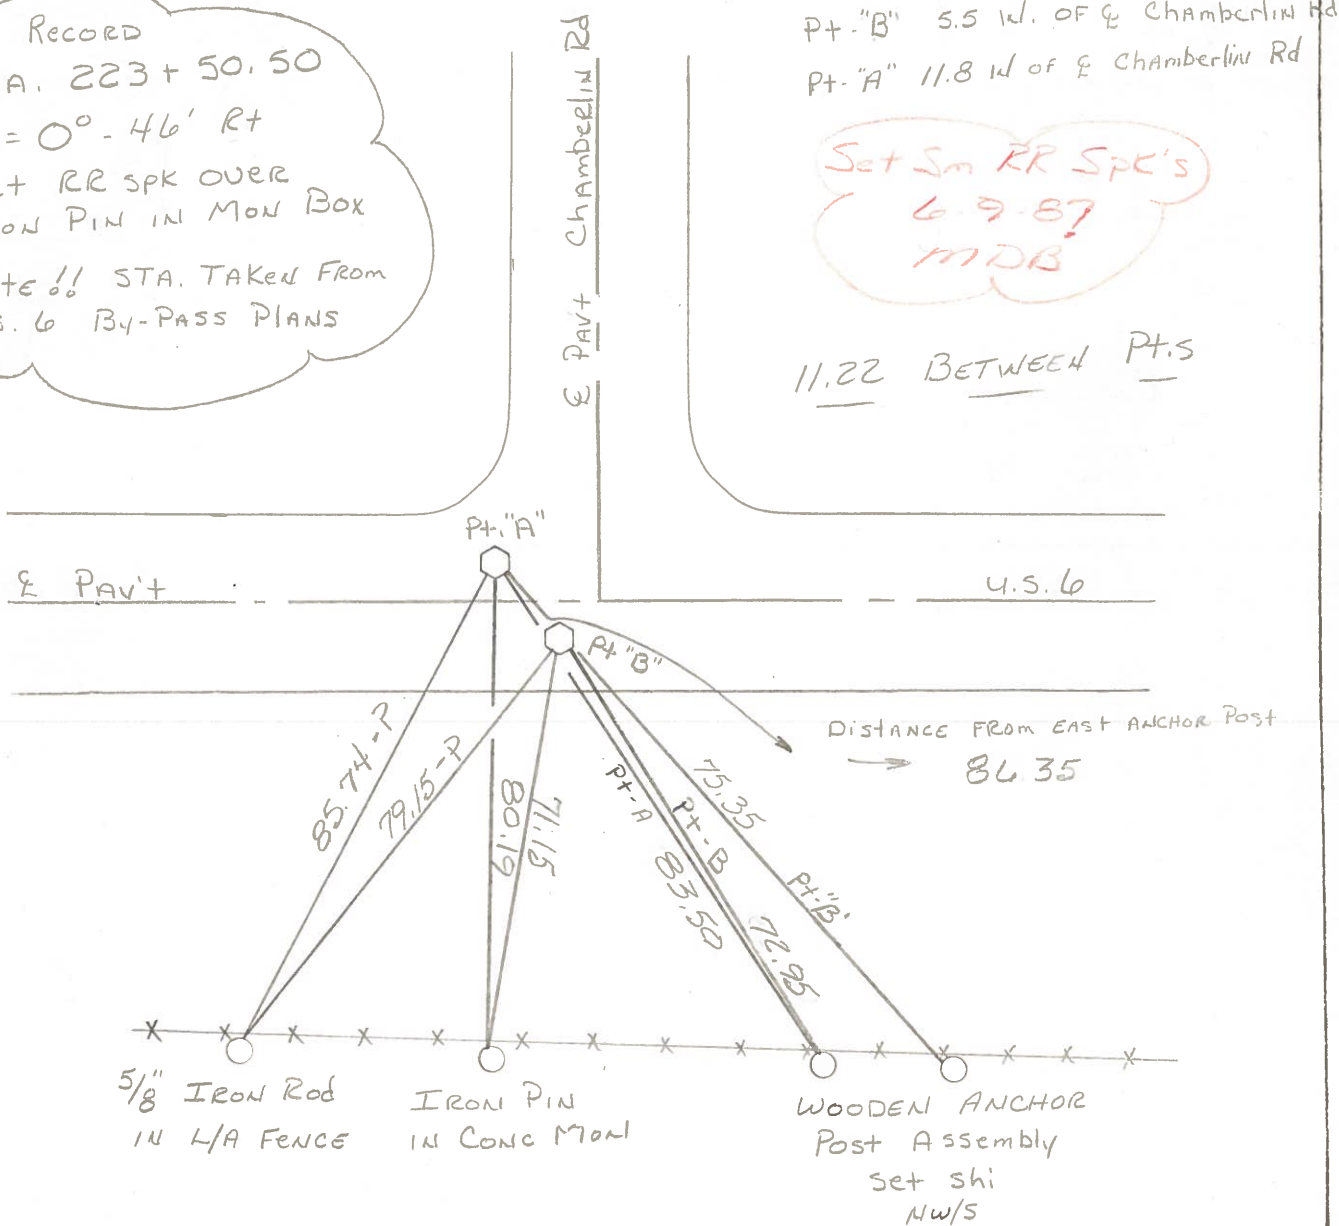 Record
A. 223 + 50.50
= 0° - 46' Rt
t RR spk over
on Pin in Mon Box
te !! STA. Taken From
S. 6 By-Pass Plans
℄ Pav't Chamberlin Rd
Pt-"B" 5.5 W. of ℄ Chamberlin Rd
Pt-"A" 11.8 W of ℄ Chamberlin Rd
Set Sm RR Spk's
6-9-87
MDB
11.22 Between Pt.s
Pt."A"
℄ Pav't
U.S. 6
Pt "B"
Distance From East Anchor Post
86.35
85.74-P
79.15-P
80.19
71.15
Pt-A
83.50
Pt-B
72.95
75.35
Pt-"B'
5/8" Iron Rod
in L/A Fence
Iron Pin
in Conc Mon
Wooden Anchor
Post Assembly
Set shi
NW/S